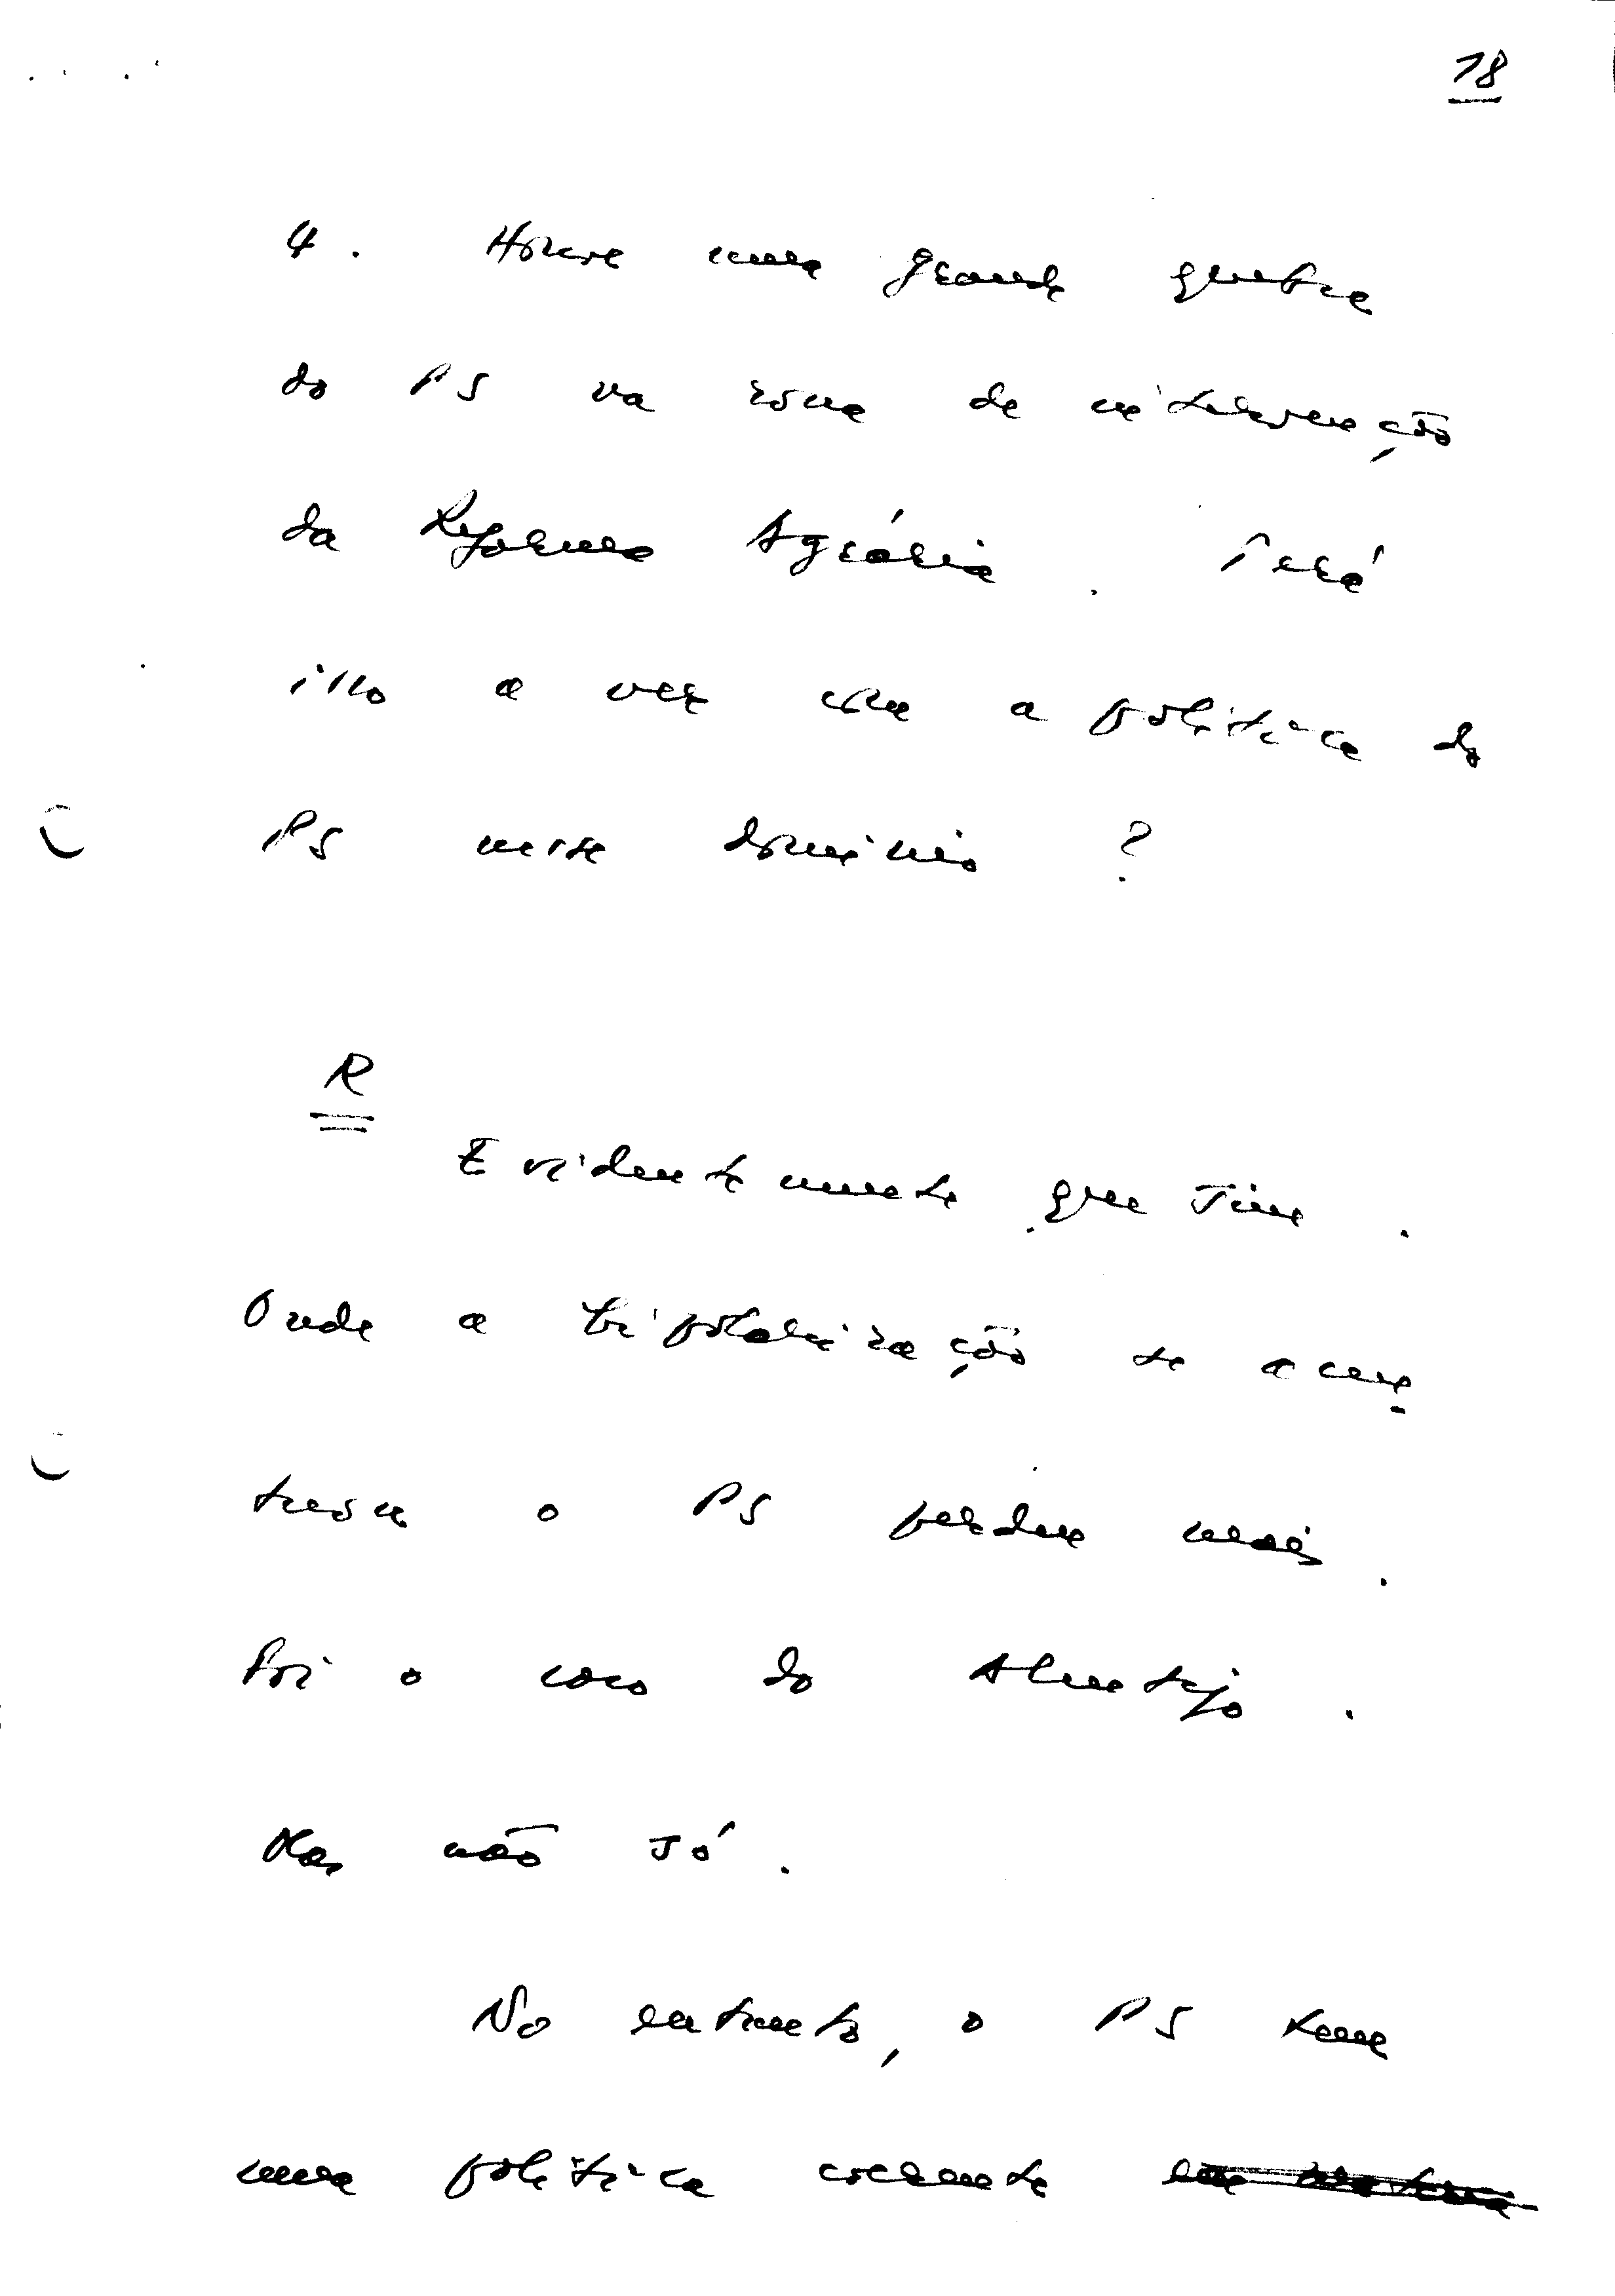 18
4. Houve uma grande quebra
do PS na zona de intervenção
da Reforma Agrária. Terá
isso a ver com a política do
PS neste domínio?
R
Evidentemente que sim.
Onde a bipolarização se acen-
tuou o PS perdeu mais.
Foi o caso do Alentejo.
Mas não só.
No entanto, o PS tem
uma política coerente em matéria